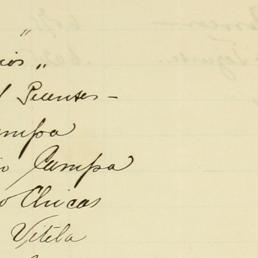 "
ios "
l Puentes -
ampa
io Campa
o Chicas
Vitela